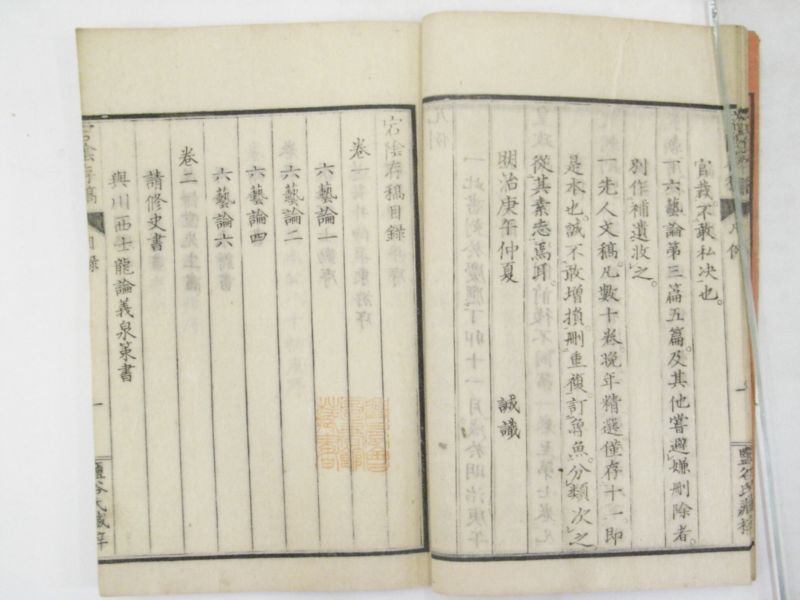 官哉不敢私决也。
一六藝論第三篇五篇。及其他嘗避嫌刪除者。
別作補遺收之。
一先人文稿。凡數十卷晚年精選僅存十一。即
是本也。誠不敢增損。刪重復。訂魯魚。分類次之
從其素志焉耳。
明治庚午仲夏
誠識
凡例
鹽谷氏藏梓
宕陰存稿目錄
卷一
六藝論一
六藝論二
六藝論四
六藝論六
卷二
請修史書
與川西士龍論義泉策書
宕陰存稿
目錄
一
鹽谷氏藏梓